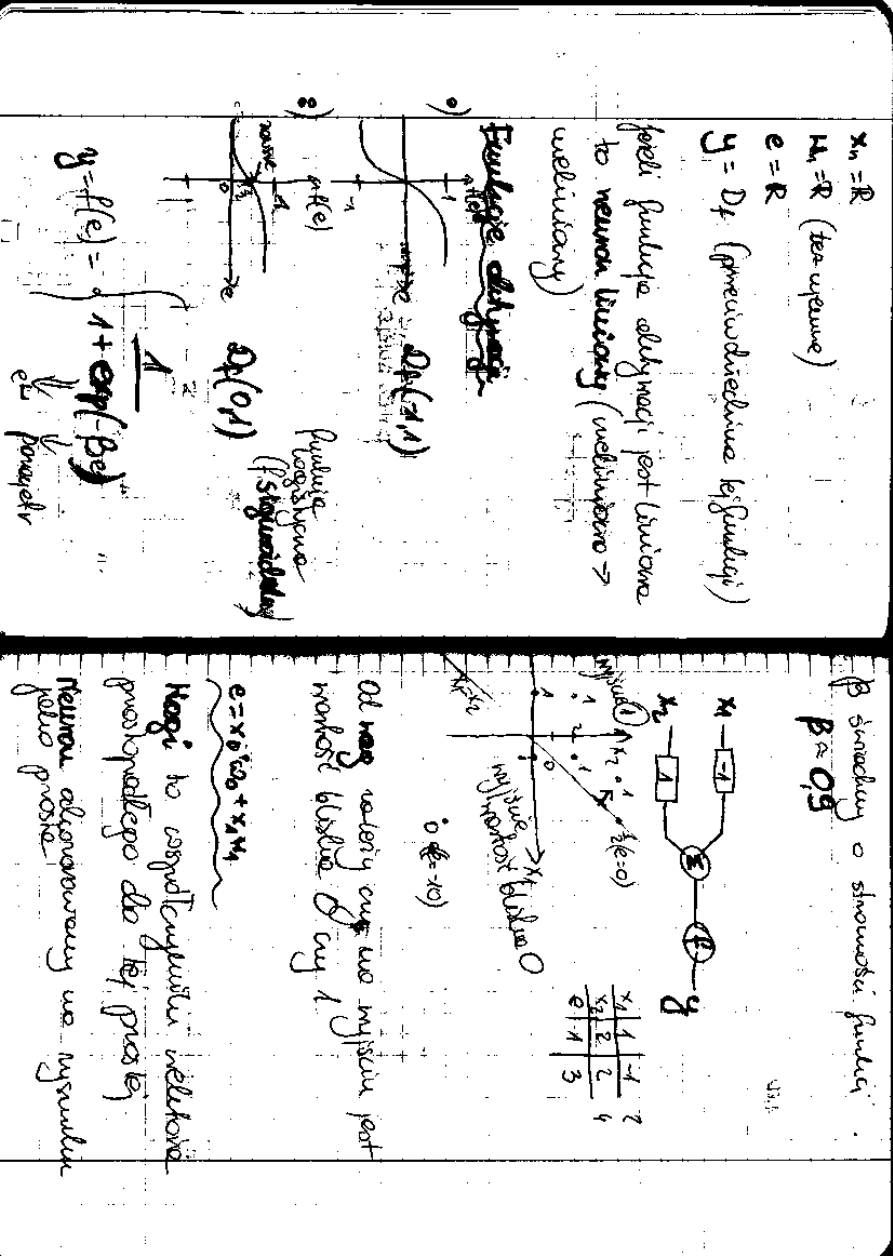 xₙ = ℝ
wₙ = ℝ (też ujemne)
e = ℝ
y = D_f (przeciwdziedzina tej funkcji)
jeżeli funkcja aktywacji jest liniowa
to neuron liniowy (nieliniowa →
nieliniowy)
Funkcje aktywacji
f(e)
1
-1
D_f(-1,1)
f(e)
1
½
0
e
D_f(0,1)
funkcja
logistyczna
(f. sigmoidalna)
y = f(e) = 1 / (1 + exp(-βe))
parametr
β świadczy o stromości funkcji
β ≈ 0,9
x₁ -1
x₂ 1
Σ f y
x₁ 1 -1 2
x₂ 2 2 4
e -1 3
wyjście 1
x₂
½ (e=0)
x₁
x₁=x₂
wyjście
wartość bliska 0
0 (e=-10)
Od wag zależy czy na wyjściu jest
wartość bliska 0 czy 1
e = x₀w₀ + x₁w₁
Wagi to współczynniki wektora
prostopadłego do tej prostej
Neuron na rysunku
jako prosta